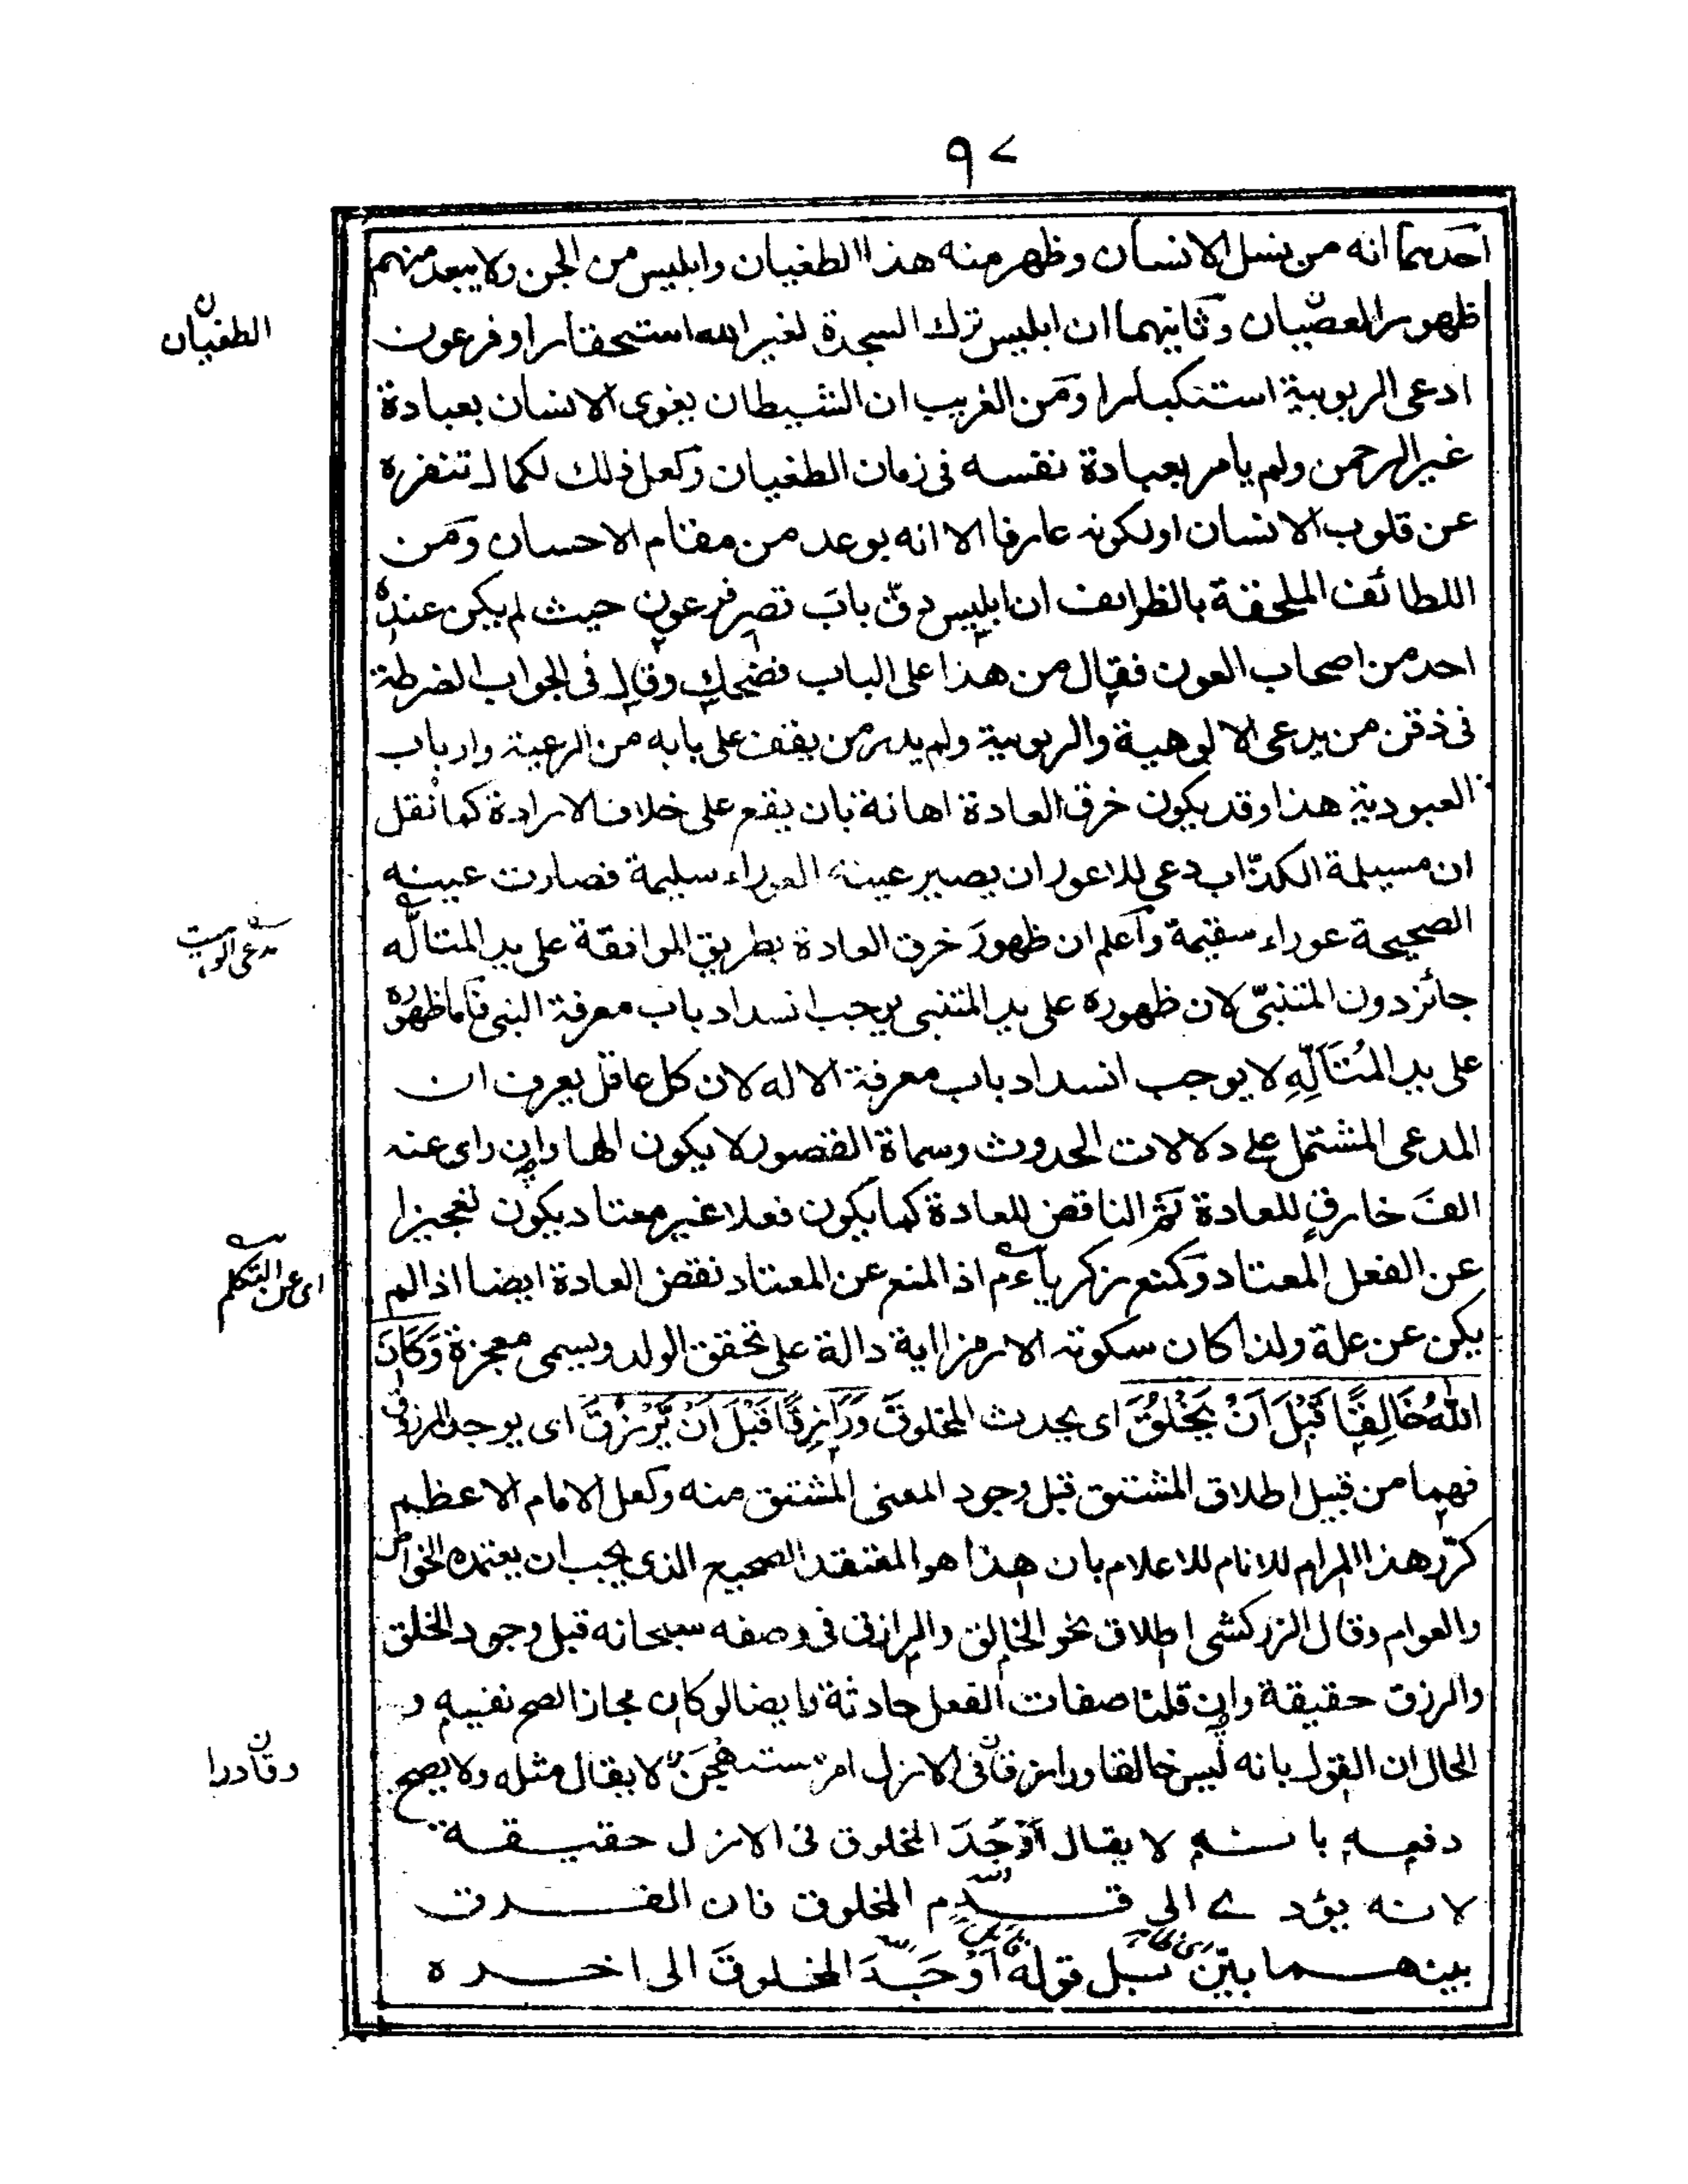 ٩٧
احدهما انه من نسل الانسان وظهر منه هذا الطغيان وابليس من الجن ولا يبعد منهم
ظهور العصيان وثانيهما ان ابليس ترك السجدة لغير الله استحقارا وفرعون
ادعى الربوبية استكبارا ومن الغريب ان الشيطان يغوى الانسان بعبادة
غير الرحمن ولم يامر بعبادة نفسه فى زمان الطغيان ولعل ذلك لكمال تنفره
عن قلوب الانسان او لكونه عارفا الا انه بوعد من مقام الاحسان ومن
اللطائف الملحقة بالظرائف ان ابليس دق باب قصر فرعون حيث لم يكن عنده
احد من اصحاب العون فقال من هذا على الباب فضحك وقال فى الجواب الضرطة
فى ذقن من يدعى الالوهية والربوبية ولم يدر من يقف على بابه من الرعية وارباب
العبودية هذا وقد يكون خرق العادة اهانة بان يقع على خلاف الارادة كما نقل
ان مسيلمة الكذّاب دعى للاعور ان يصير عينه العوراء سليمة فصارت عينه
الصحيحة عوراء سقيمة واعلم ان ظهورَ خرق العادة بطريق الموافقة على يد المتألّه
جائز دون المتنبّى لان ظهوره على يد المتنبى يوجب انسداد باب معرفة النبى فاما ظهوره
على يد المُتَأَلِّهِ لا يوجب انسداد باب معرفة الاله لان كل عاقل يعرف ان
المدعى المشتمل على دلالات الحدوث وسماة القصور لا يكون الها وان راى عنه
الفَ خارقٍ للعادة ثم الناقض للعادة كما يكون فعلا غير معتاد يكون تعجيزا
عن الفعل المعتاد كمنع زكرياء عم اذ المنع عن المعتاد نقض العادة ايضا اذا لم
يكن عن علة ولذا كان سكوته الا رمزا اية دالة على تحقق الولد ويسمى معجزة وَكَانَ
اللهُ خَالِقًا قَبْلَ اَنْ يَخْلُقَ اى يحدث المخلوقَ وَرَازِقًا قَبْلَ اَنْ يَّرْزُقَ اى يوجد المرزوق
فهما من قبيل اطلاق المشتق قبل وجود المعنى المشتق منه ولعل الامام الاعظم
كرّر هذا المرام للانام للاعلام بان هذا هو المعتقد الصحيح الذى يجب ان يعتمده الخواص
والعوام وقال الزركشى اطلاق نحو الخالق والرازق فى وصفه سبحانه قبل وجود الخلق
والرزق حقيقة وان قلنا صفات الفعل حادثة وايضا لو كان مجازا لصح نفيه و
الحال ان القول بانه ليس خالقا ورازقا فى الازل امر مستهجن لا يقال مثله ولا يصح
دفعه بانه لا يقال اَوْجَدَ المخلوق فى الازل حقيقة
لانه يؤدے الى قدم المخلوق فان الفرق
بينهما بيّن بل قوله اَوْجَدَ المخلوقَ الى اخره
الطغيان ن
مدعى الوهيت
اى عن التكلم
وقادرا ن